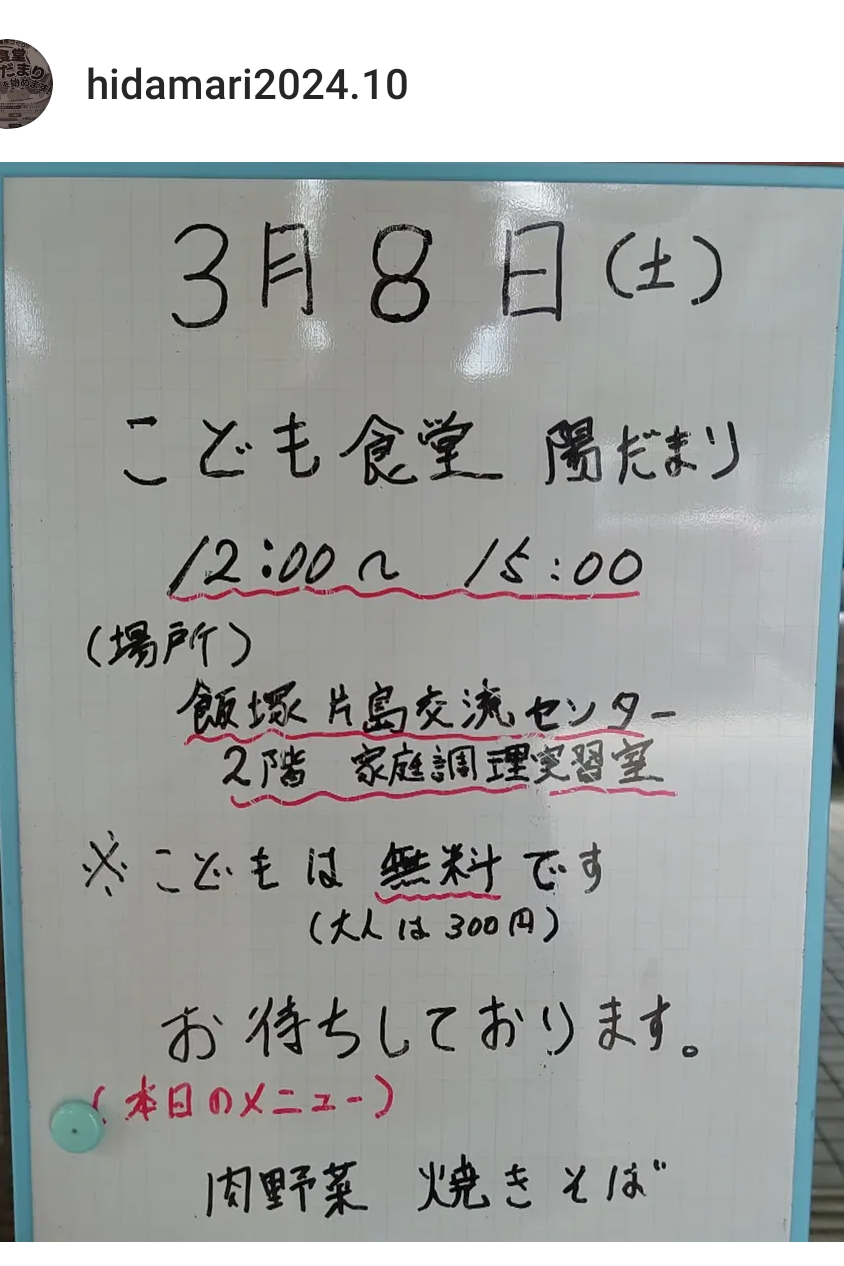 食堂
だまり
を始めます!
hidamari2024.10
3月8日(土)
こども食堂 陽だまり
12:00〜 15:00
(場所)
飯塚片島交流センター
2階 家庭調理実習室
※こどもは無料です
(大人は300円)
お待ちしております。
(本日のメニュー)
肉野菜 焼きそば